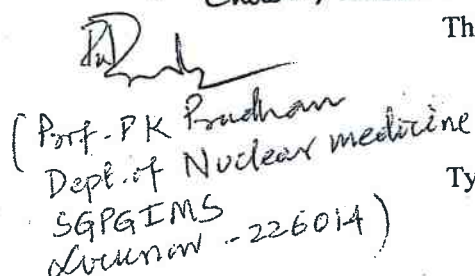 Th
(Prof. PK Pradhan
Dept. of Nuclear medicine
Ty
SGPGIMS
Lucknow - 226014)